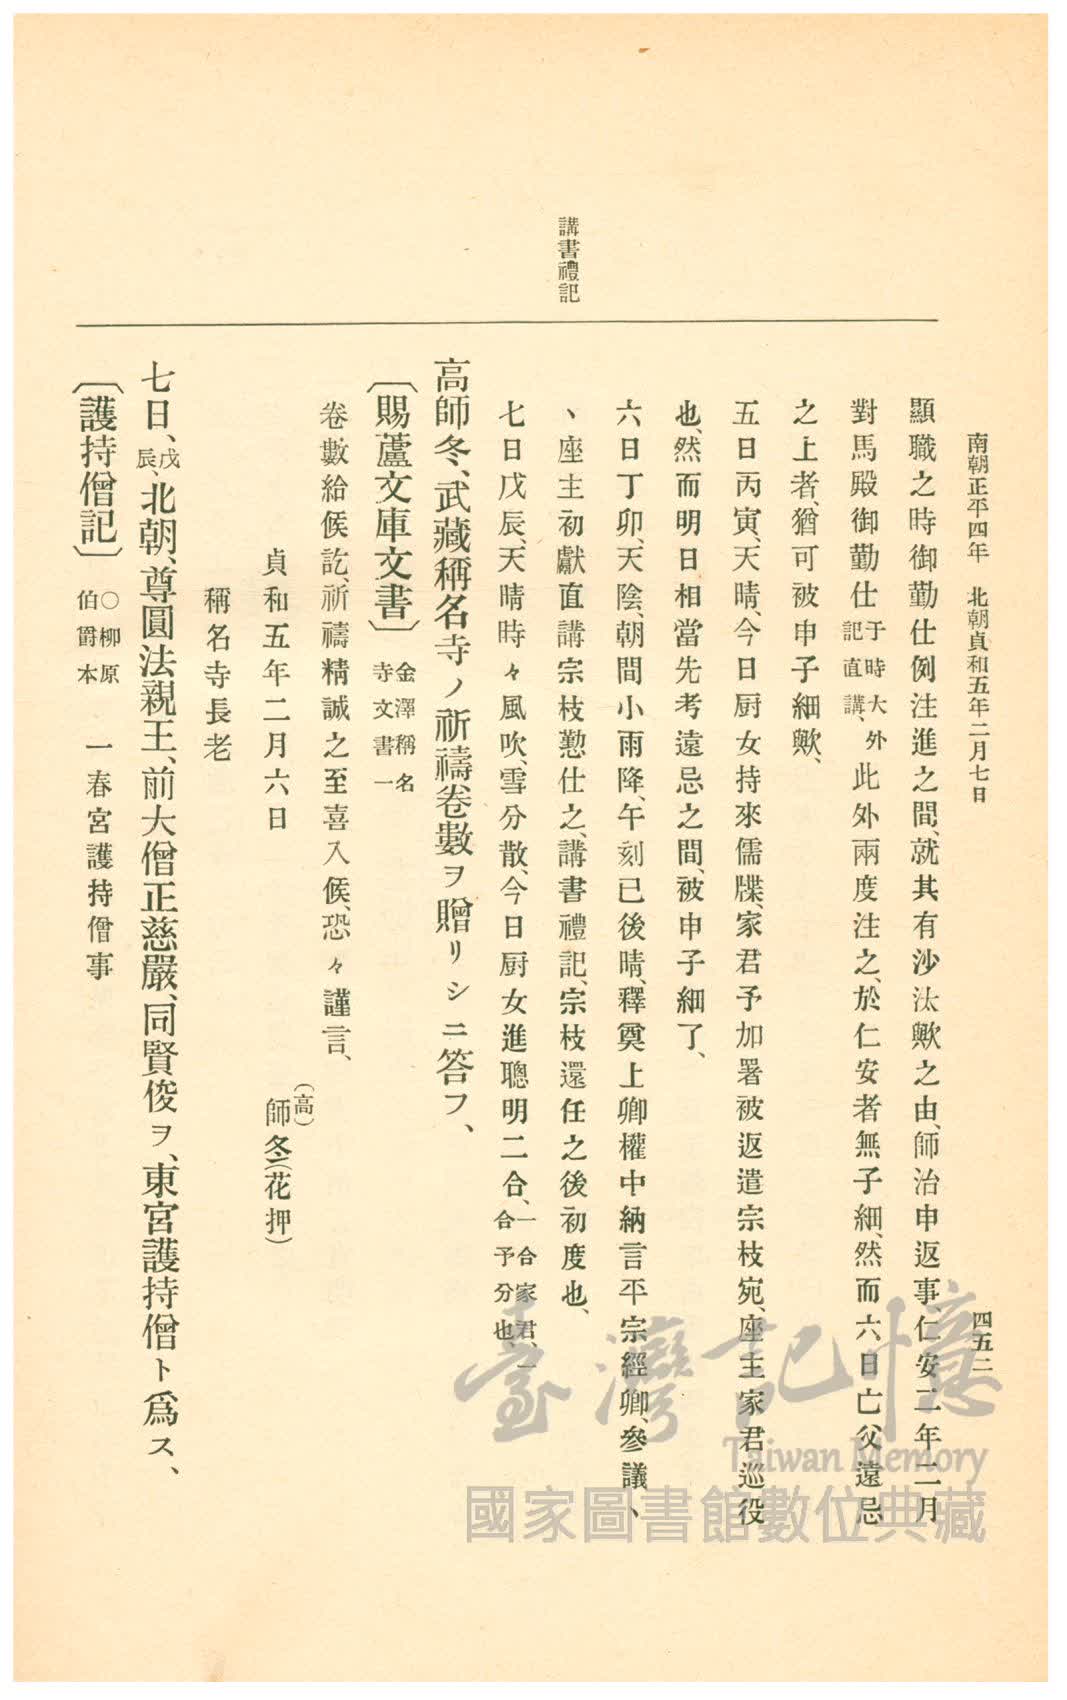 南朝正平四年　北朝貞和五年二月七日
四五二
講書禮記
顯職之時御勤仕例注進之間、就其有沙汰歟之由、師治申返事、仁安二年二月
對馬殿御勤仕于時大外記直講、此外兩度注之、於仁安者無子細、然而六日亡父遠忌
之上者、猶可被申子細歟、
五日丙寅、天晴、今日厨女持來儒牒、家君予加署被返遣宗枝宛、座主家君巡役
也、然而明日相當先考遠忌之間、被申子細了、
六日丁卯、天陰、朝間小雨降、午刻已後晴、釋奠上卿權中納言平宗經卿、參議、
、座主初獻直講宗枝懃仕之、講書禮記、宗枝還任之後初度也、
七日戊辰、天晴時々風吹、雪分散、今日厨女進聰明二合、一合家君、一合予分也、
高師冬、武藏稱名寺ノ祈禱卷數ヲ贈リシニ答フ、
〔賜蘆文庫文書〕金澤稱名寺文書一
卷數給候訖、祈禱精誠之至喜入候、恐々謹言、
貞和五年二月六日
（高）師冬（花押）
稱名寺長老
七日、戊辰、北朝、尊圓法親王、前大僧正慈嚴、同賢俊ヲ、東宮護持僧ト爲ス、
〔護持僧記〕○柳原伯爵本　一春宮護持僧事
臺灣記憶
Taiwan Memory
國家圖書館數位典藏